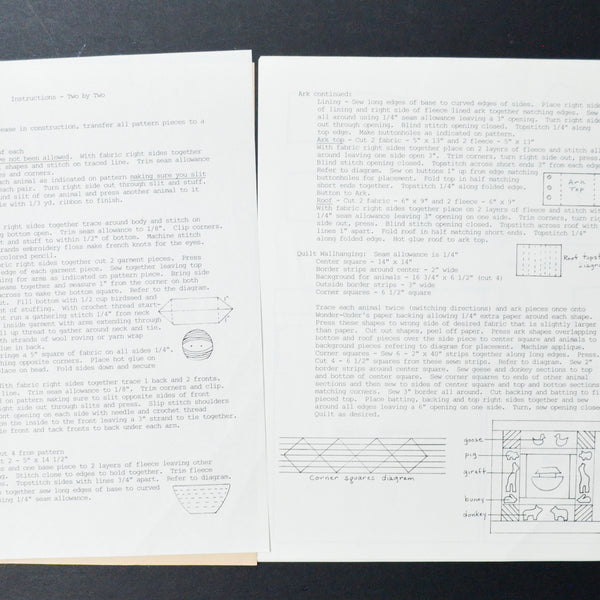 Instructions - Two by Two
ease in construction, transfer all pattern pieces to a
of each
ve not been allowed. With fabric right sides together
shapes and stitch on traced line. Trim seam allowance
es and corners.
each animal as indicated on pattern making sure you slit
each pair. Turn right side out through slit and stuff.
und slit of one animal and press another animal to it
le with 1/3 yd. ribbon to finish.
right sides together trace around body and stitch on
bottom open. Trim seam allowance to 1/8". Clip corners.
t and stuff to within 1/2" of bottom. Machine stitch
strands embroidery floss make french knots for the eyes.
colored pencil.
abric right sides together cut 2 garment pieces. Press
edge of each garment piece. Sew together leaving top
ning for arms as indicated on pattern piece. Bring side
seams together and measure 1" from the corner on both
across to make the bottom square. Refer to the diagram.
ut. Fill bottom with 1/2 cup birdseed and
t of stuffing. With crochet thread start-
nt run a gathering stitch 1/4" from neck
inside garment with arms extending through
ll up thread to gather around neck and tie.
th strands of wool roving or yarn wrap
lue in back.
ringe a 5" square of fabric on all sides 1/4".
tching opposite corners. Place hot glue on
lace on head. Fold sides down and secure
With fabric right sides together trace 1 back and 2 fronts.
line. Trim seam allowance to 1/8". Trim corners and clip.
d on pattern making sure to slit opposite sides of front
ight side out through slits and press. Slip stitch shoulders
ont opening on each side with needle and crochet thread
om the inside to the front leaving a 3" strand to tie together.
e front and tack fronts to back under each arm.
ut 4 from pattern
t 2 - 5" x 14 1/2"
es and one base piece to 2 layers of fleece leaving other
ng. Stitch close to edges to hold together. Trim fleece
es. Topstitch sides with lines 3/4" apart. Refer to diagram.
n together sew long edges of base to curved
ng 1/4" seam allowance.
1"
Ark continued:
Lining - Sew long edges of base to curved edges of sides. Place right side
of lining and right side of fleece lined ark together matching edges. Sew
all around using 1/4" seam allowance leaving a 3" opening. Turn right side
out through opening. Blind stitch opening closed. Topstitch 1/4" along
top edge. Make buttonholes as indicated on pattern.
Ark top - Cut 2 fabric - 5" x 13" and 2 fleece - 5" x 13"
With fabric right sides together place on 2 layers of fleece and stitch all
around leaving one side open 3". Trim corners, turn right side out, press.
Blind stitch opening closed. Topstitch across short edges 3" from each edge
Refer to diagram. Sew on buttons 1" up from edge matching
buttonholes for placement. Fold top in half matching
short ends together. Topstitch 1/4" along folded edge.
Button to Ark.
Roof - Cut 2 fabric - 6" x 9" and 2 fleece - 6" x 9"
With fabric right sides together place on 2 layers of fleece and stitch with
1/4" seam allowance leaving 3" opening on one side. Trim corners, turn right
side out, press. Blind stitch opening closed. Topstitch across roof with
lines 1" apart. Fold roof in half matching short ends. Topstitch 1/4"
along folded edge. Hot glue roof to ark top.
Ark
Top
Roof topst
diagra
Quilt Wallhanging: Seam allowance is 1/4"
Center square - 14" x 14"
Border strips around center - 2" wide
Background for animals - 16 3/4" x 6 1/2" (cut 4)
Outside border strips - 3" wide
Corner squares - 6 1/2" square
Trace each animal twice (switching directions) and ark pieces onto
Wonder-Under's paper backing allowing 1/4" extra paper around each shape.
Press these shapes to wrong side of desired fabric that is slightly larger
than paper. Cut out shapes, peel off paper. Press ark shapes overlapping
bottom and roof pieces over the side piece to center square and animals to
background pieces refering to diagram for placement. Machine applique.
Corner squares - Sew 6 - 2" x 40" strips together along long edges. Press.
Cut 4 - 6 1/2" squares from these sewn strips. Refer to diagram. Sew 2"
border strips around center square. Sew geese and donkey sections to top
and bottom of center square. Sew corner squares to ends of other animal
sections and then sew to sides of center square and top and bottom sections
matching corners. Sew 3" border all around. Cut backing and batting to fi
pieced top. Place batting, backing and top right sides together and sew
around all edges leaving a 6" opening on one side. Turn, sew opening closed
Quilt as desired.
Corner squares diagram
goose
pig
giraffe
bunny
donkey